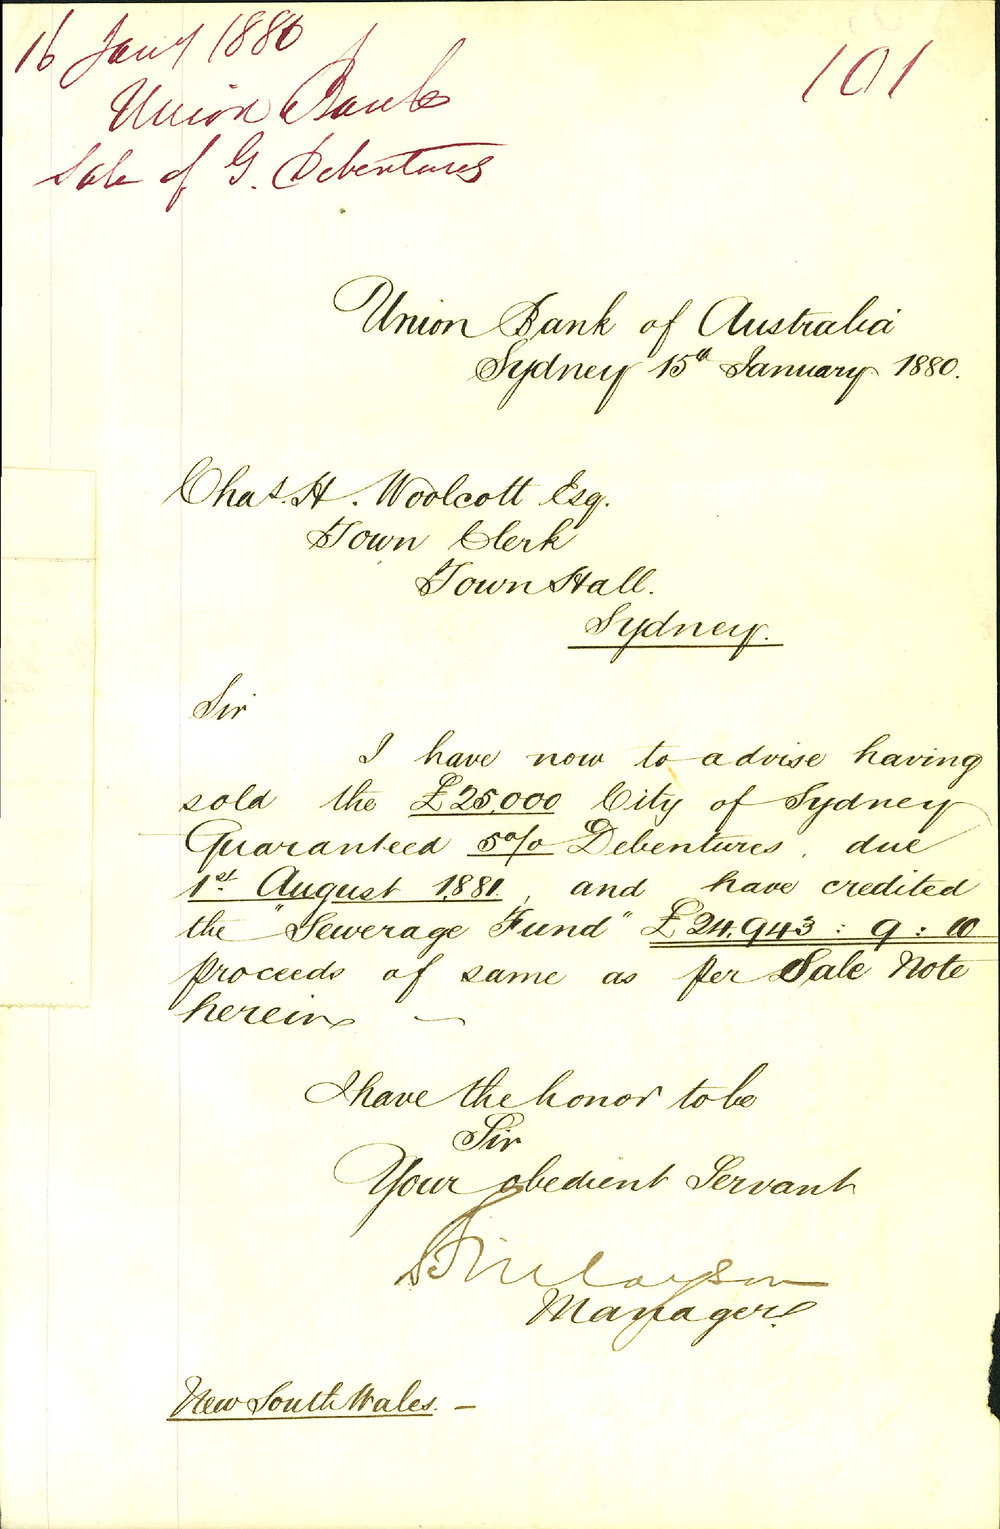 16 Jany 1880
101
Union Bank
Sale of G. Debentures
Union Bank of Australia
Sydney 15th January 1880.
Chas. H. Woolcott Esq.
Town Clerk
Town Hall.
Sydney.
Sir
I have now to advise having
sold the £25,000 City of Sydney
Guaranteed 5% Debentures, due
1st August 1881, and have credited
the "Sewerage Fund" £24,943 : 9 : 10
proceeds of same as per Sale Note
herein
I have the honor to be
Sir
Your obedient Servant
Finlayson
Manager.
New South Wales. –